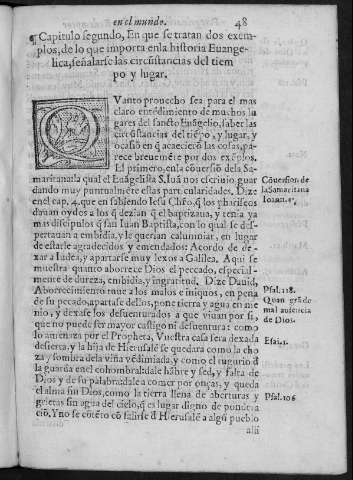 en el mundo. 48
¶ Capitulo segundo, En que se tratan dos exem-
plos, de lo que importa enla historia Euange-
lica, señalarse las circũstãcias del tiem
po y lugar.
QVanto prouecho sea para el mas
claro entẽdimiento de muchos lu
gares del sancto Euãgelio, saber las
circũstancias del tiẽpo, y lugar, y
ocasiõ en q̃ acaeciero las cosas, pa
rece breuemẽte por dos exẽplos.
El primero, en la cõuersiõ dela Sa-
maritana la qual el Euãgelista S. Iuã nos escriuio guar
dando muy puntualmẽte estas particularidades. Dize
en el cap. 4. que en sabiendo Iesu Chro, q̃ los phariseos
dauan oydos a los q̃ dezian q̃ el baptizaua, y tenia ya
mas discipulos q̃ san Iuan Baptista, con lo qual se des-
pertauan a embidia, y le querian calumniar, en lugar
de estarle agradecidos y emendados: Acordo de de-
xar a Iudea, y apartarse muy lexos a Galilea. Aqui se
muestra quanto aborrece Dios el peccado, especial-
mente de dureza, embidia, y ingratitud. Dize Dauid,
Aborrecimiento tuue a los malos e iniquos, en pena
de su pecado, apartase dellos, pone tierra y agua en me
nio, y dexase los desuenturados a que viuan por si,
que no puede ser mayor castigo ni desuentura: como
lo amenaza por el Propheta, Vuestra casa sera dexada
desierta, y la hija de Hierusalẽ se quedara como la cho
za y sombra dela viña vẽdimiada, y como el tugurio d̃
la guarda enel cohombral: dale hãbre y sed, y falta de
Dios y de su palabra: dale a comer por onças, y queda
el alma sin Dios, como la tierra llena de aberturas y
grietas sin agua del cielo, q̃ es lugar digno de pondera
ciõ, Y no se cõtẽto cõ salirse d̃ Hierusalẽ a algũ pueblo
alli
Cõuersion de
la Samaritana
Ioann. 4.
Psal. 118.
Quan grã de
mal ausencia
de Dios.
Esai. 1.
Psal. 106